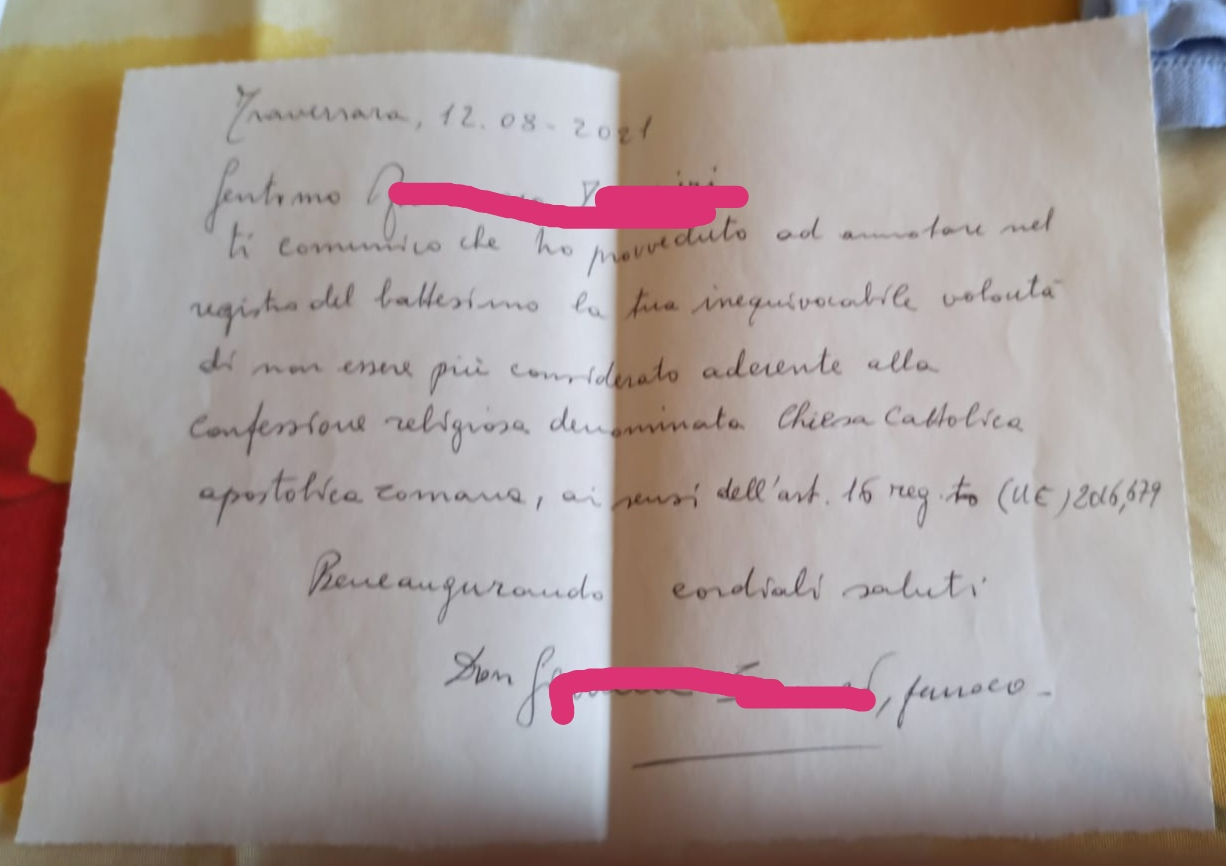 Traversara, 12.08-2021
Gent.mo
ti comunico che ho provveduto ad annotare nel
registro del battesimo la tua inequivocabile volontà
di non essere più considerato aderente alla
confessione religiosa denominata Chiesa Cattolica
apostolica romana, ai sensi dell'art. 16 reg.to (UE) 2016,679
Beneaugurando cordiali saluti
Don , parroco -